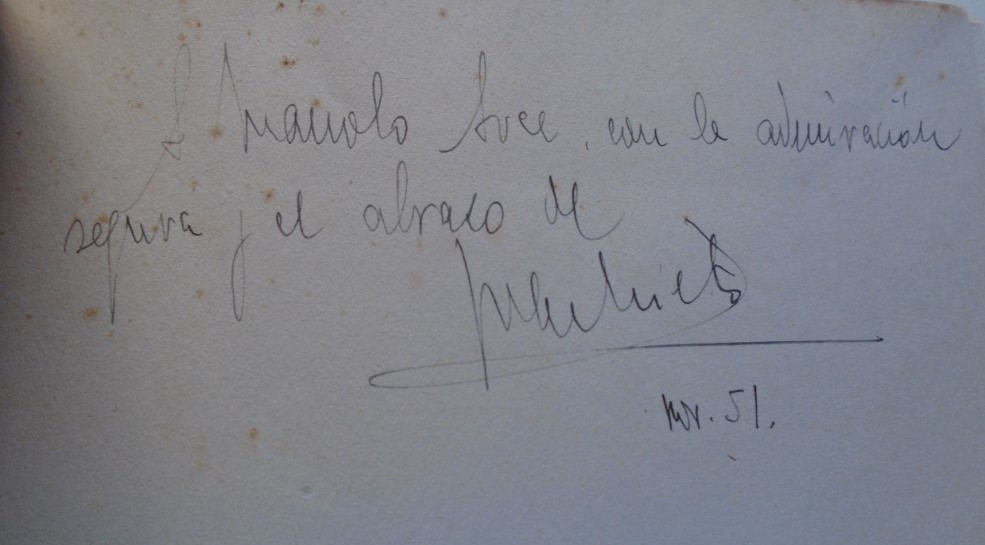 A Manolo Arce, con la admiración
segura y el abrazo de
nov. 51.